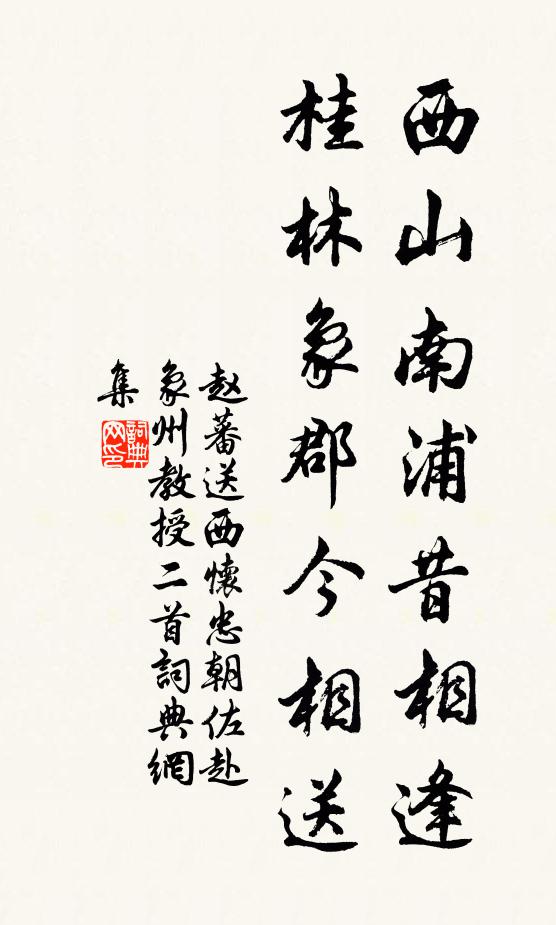 西山南浦昔相逢
桂林象郡今相送
赵蕃送西懷忠朝佐赴
象州教授二首詞典網
集
詞典网印